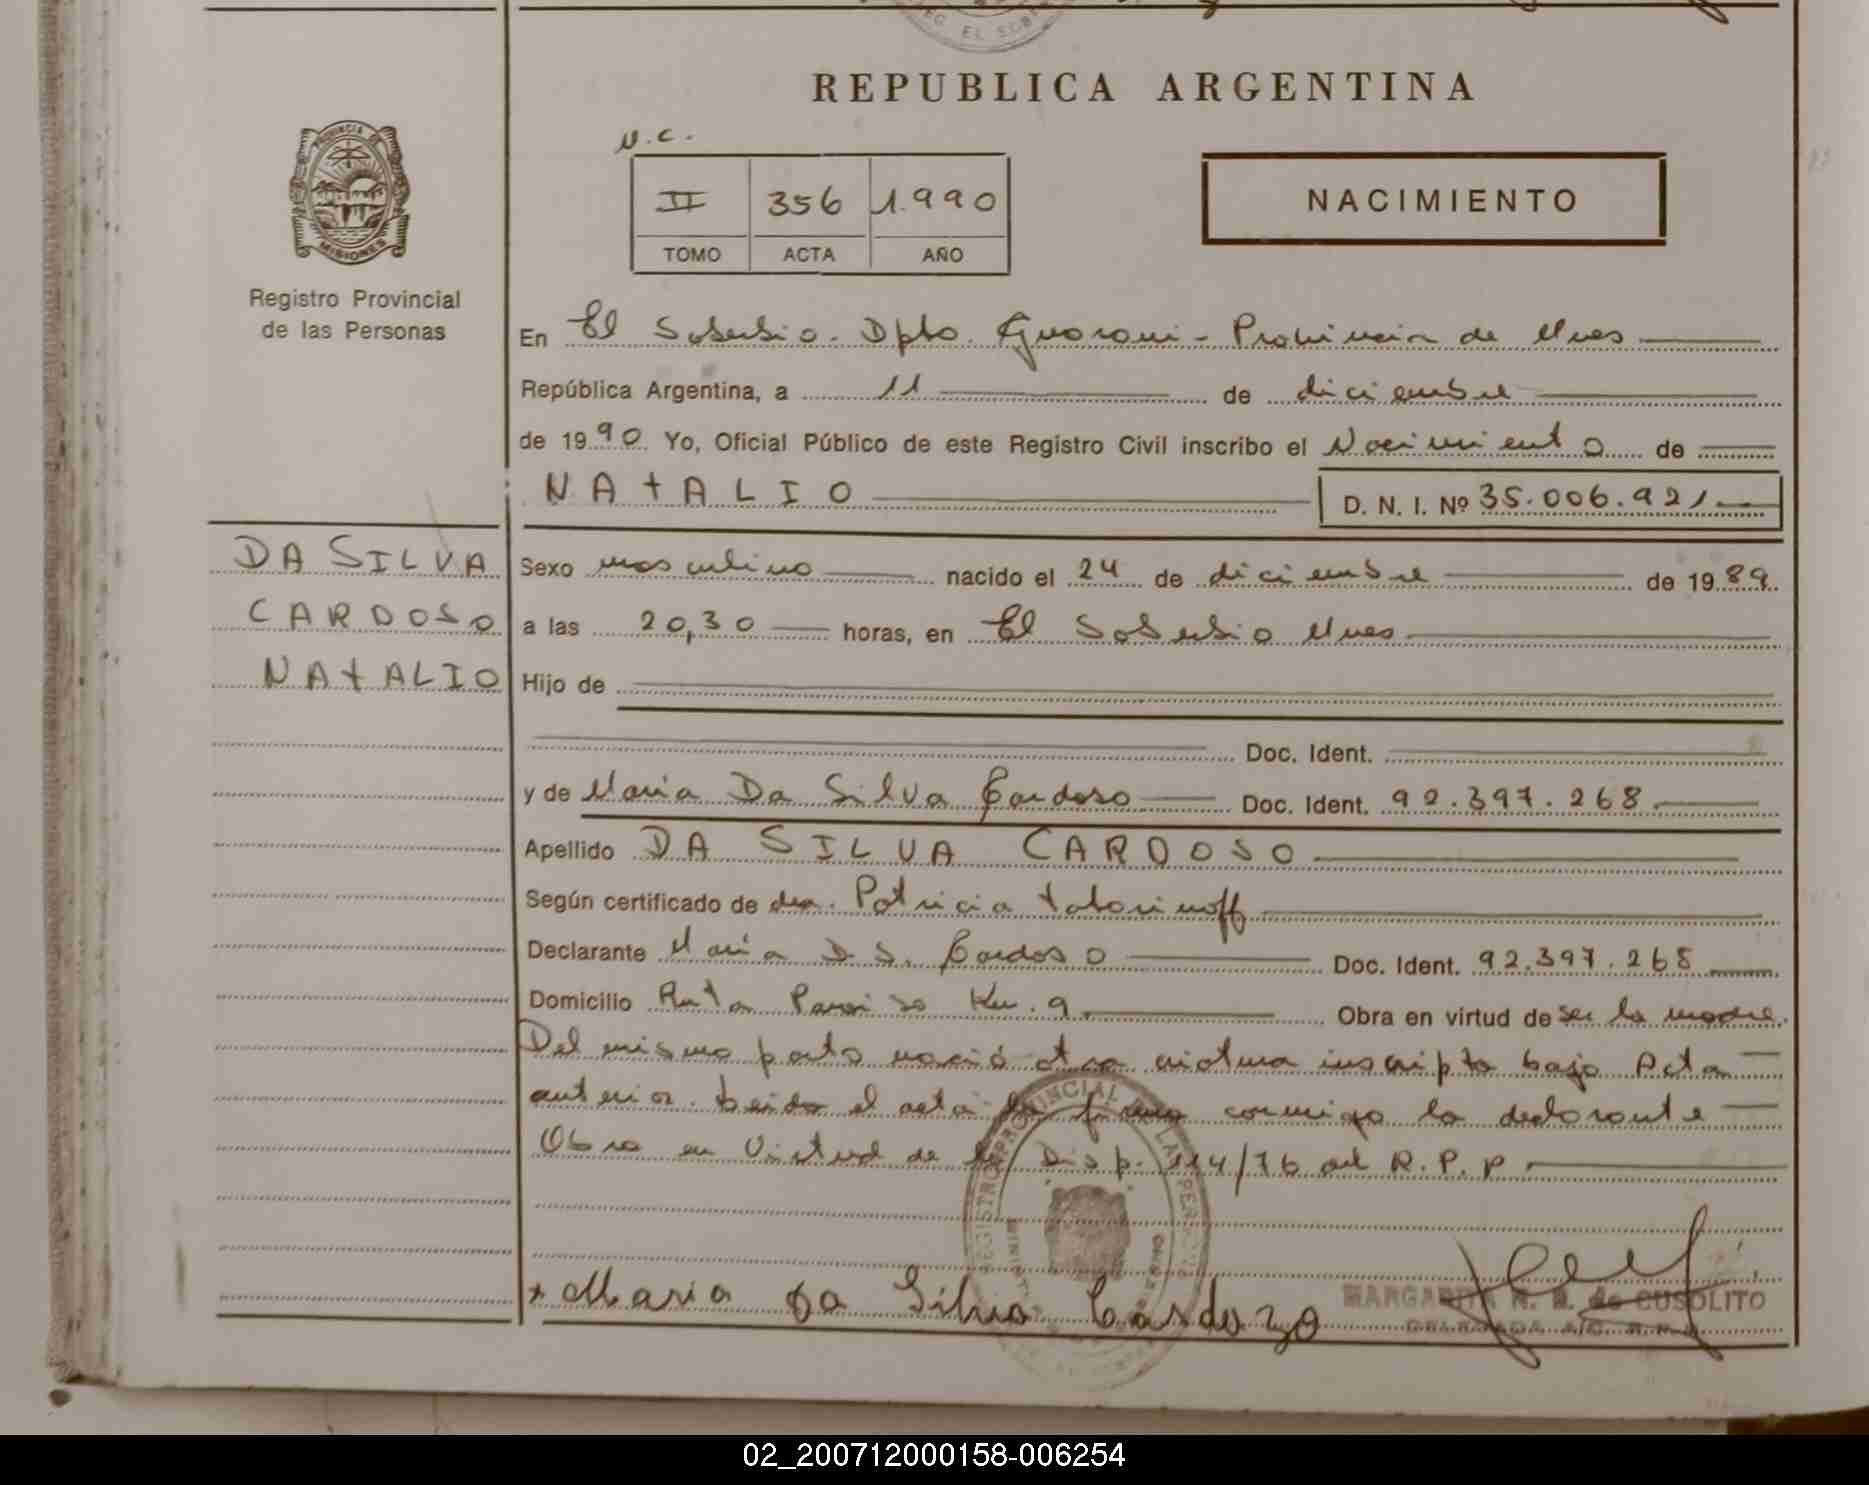 REPUBLICA ARGENTINA
PROVINCIA DE
MISIONES
Registro Provincial
de las Personas
N.C.
II 356 1.990
TOMO ACTA AÑO
NACIMIENTO
En El Soberbio. Dpto. Guarani - Provincia de Mnes
República Argentina, a 11 de diciembre
de 1990 Yo, Oficial Público de este Registro Civil inscribo el Nacimiento de
NATALIO D. N. I. Nº 35.006.921
DA SILVA
CARDOSO
NATALIO
Sexo masculino nacido el 24 de diciembre de 1989.
a las 20,30 horas, en El Soberbio Mnes
Hijo de
Doc. Ident.
y de Maria Da Silva Cardoso Doc. Ident. 92.397.268.
Apellido DA SILVA CARDOSO
Según certificado de dra. Patricia
Declarante Maria D. S. Cardoso Doc. Ident. 92.397.268
Domicilio Ruta Paraiso Km. 9. Obra en virtud de ser la madre.
Del mismo parto nació otra criatura inscripta bajo Acta
anterior. Leida el acta la firma conmigo la declarante
Obra en Virtud de la Disp. 114/76 del R.P.P.
x Maria da Silva Cardozo
MARGARITA N. N. de CUSOLITO
DELEGADA A/C. R.P.P.
REGISTRO PROVINCIAL DE LAS PERSONAS
02_200712000158-006254